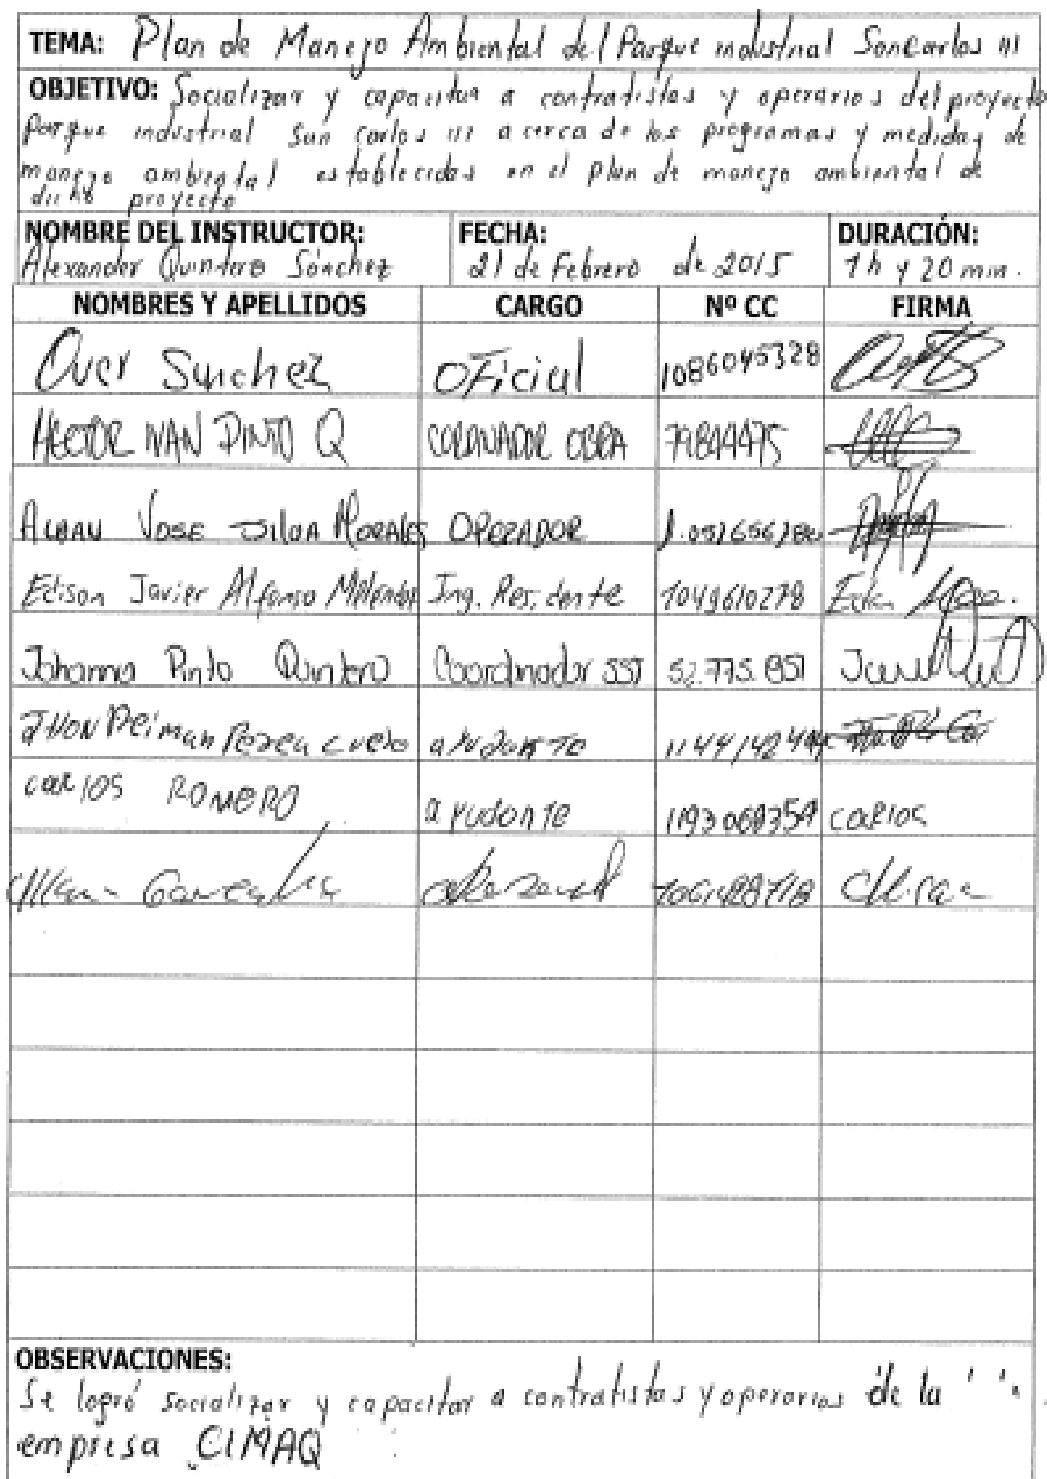 TEMA: Plan de Manejo Ambiental del Parque industrial San Carlos III
OBJETIVO: Socializar y capacitar a contratistas y operarios del proyecto
Parque industrial San Carlos III acerca de los programas y medidas de
manejo ambiental establecidas en el plan de manejo ambiental de
dicho proyecto
NOMBRE DEL INSTRUCTOR: FECHA: DURACIÓN:
Alexander Quintero Sánchez 21 de Febrero de 2015 1h y 20 min.
NOMBRES Y APELLIDOS CARGO Nº CC FIRMA
Over Sanchez OFicial 1086045328
HECTOR IVAN PINTO Q COORDINADOR OBRA
JOSE SILVA MORALES OPERADOR
Edison Javier Alfonso Melendez Ing. Residente 1049610278
Johanna Pinto Quintero Coordinador SST 52.775.851
JHON Deiman Perea cuero ayudante
carlos ROMERO ayudante carlos
OBSERVACIONES:
Se logró socializar y capacitar a contratistas y operarios de la
empresa CIMAQ